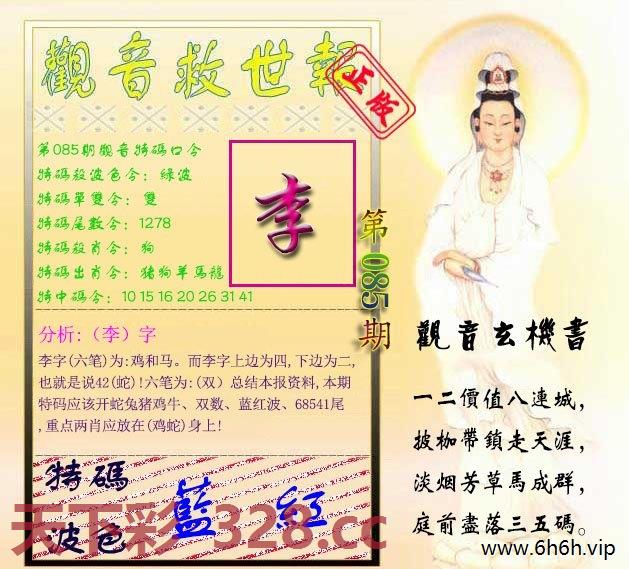 觀音救世報
正版
第085期觀音特碼口令
特碼殺波色令：綠波
特碼單雙令：雙
特碼尾數令：1278
特碼殺肖令：狗
特碼出肖令：豬狗羊馬龍
特中碼令：10 15 16 20 26 31 41
李
第085期
分析:（李）字
李字(六笔)为:鸡和马。而李字上边为四,下边为二,
也就是说42(蛇)!六笔为:(双）总结本报资料,本期
特码应该开蛇兔猪鸡牛、双数、蓝红波、68541尾
,重点两肖应放在(鸡蛇)身上!
特碼
波色
藍 紅
天下彩 328.cc
觀音玄機書
一二價值八連城,
披枷帶鎖走天涯,
淡烟芳草馬成群,
庭前盡落三五碼。
www.6h6h.vip